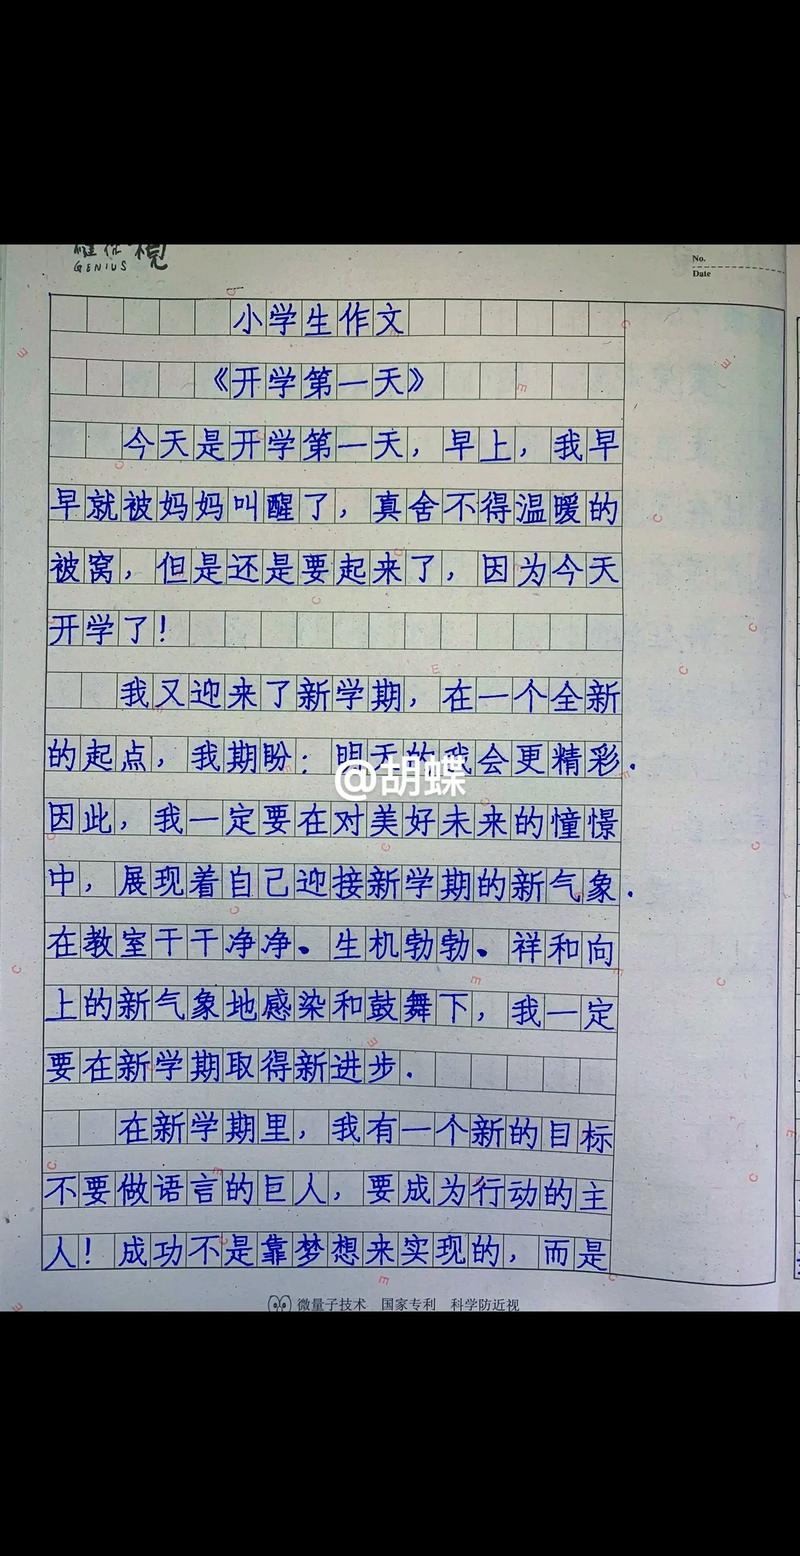 GENIUS
No.
Date
小学生作文
《开学第一天》
今天是开学第一天，早上，我早
早就被妈妈叫醒了，真舍不得温暖的
被窝，但是还是要起来了，因为今天
开学了！
我又迎来了新学期，在一个全新
的起点，我期盼：明天的我会更精彩.
@胡蝶
因此，我一定要在对美好未来的憧憬
中，展现着自己迎接新学期的新气象.
在教室干干净净、生机勃勃、祥和向
上的新气象地感染和鼓舞下，我一定
要在新学期取得新进步.
在新学期里，我有一个新的目标
不要做语言的巨人，要成为行动的主
人！成功不是靠梦想来实现的，而是
微量子技术 国家专利 科学防近视